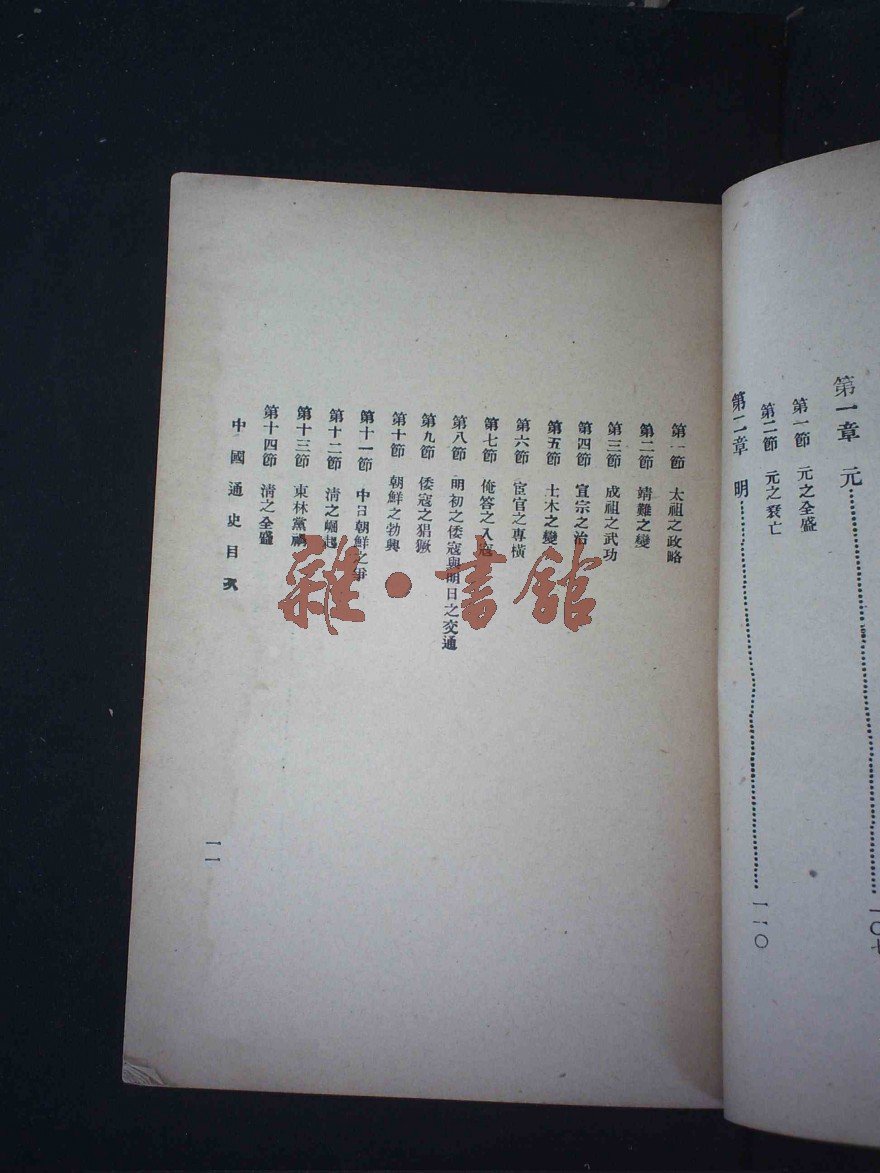 第一章　元………一〇七
第一節　元之全盛
第二節　元之衰亡
第二章　明………一一〇
第一節　太祖之政略
第二節　靖難之變
第三節　成祖之武功
第四節　宣宗之治
第五節　土木之變
第六節　宦官之專橫
第七節　俺答之入寇
第八節　明初之倭寇與明日之交通
第九節　倭寇之猖獗
第十節　朝鮮之勃興
第十一節　中日朝鮮之爭
第十二節　清之崛起
第十三節　東林黨禍
第十四節　清之全盛
中國通史目次
一一
雜·書館